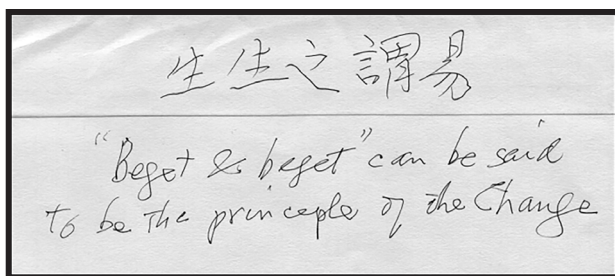 生生之謂易
"Beget & beget" can be said
to be the principle of the Change